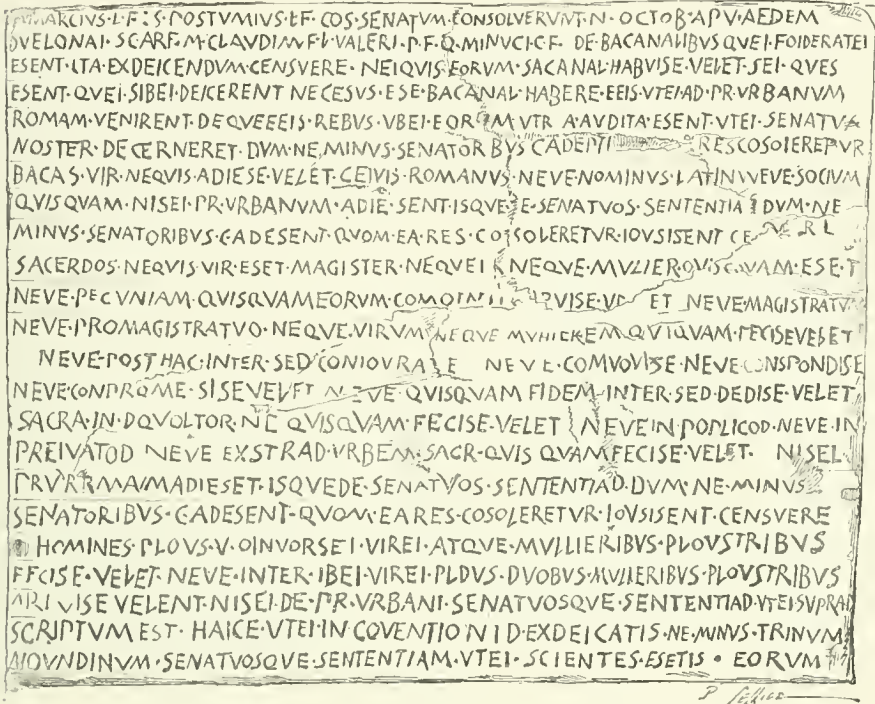 MARCIUS·L·F·S·POSTVMIVS·L·F·COS·SENATVM·CONSOLVERVNT·N·OCTOB·APV·AEDEM
DVELONAI·SC·ARF·M·CLAVDI·M·F·L·VALERI·P·F·Q·MINVCI·C·F· DE·BACANALIBVS·QVEI·FOIDERATEI
ESENT·ITA·EXDEICENDVM·CENSVERE· NEIQVIS·EORVM·SACANAL·HABVISE·VELET·SEI·QVES
ESENT·QVEI·SIBEI·DEICERENT NECESVS·ESE·BACANAL·HABERE·EEIS·VTEI·AD·PR·VRBANVM
ROMAM·VENIRENT·DEQVEEEIS·REBVS·VBEI·EOR M VTR A·AVDITA·ESENT·VTEI·SENATVS
NOSTER·DECERNERET·DVM·NE·MINVS·SENATORBVS CADE RES COSOLEREPVR
BACAS·VIR·NEQVIS·ADIESE·VELET·CEIVIS·ROMANVS·NEVE·NOMINVS·LATIN NEVE·SOCIVM
QVISQVAM·NISEI·PR·VRBANVM·ADIE SENT·ISQVE E·SENATVOS·SENTENTIA DVM·NE
MINVS·SENATORIBVS·CADESENT·QVOM·EA·RES·COSOLERETVR·IOVSISENT CE
SACERDOS·NEQVIS·VIR·ESET·MAGISTER·NEQVE NEQVE·MVLIER·QVISQVAM·ESET
NEVE·PECVNIAM·QVISQVAMEORVM·COMOIN VISE·V ET NEVE·MAGISTRATVM
NEVE·PROMAGISTRATVO·NEQVE·VIRVM NEQVE MVHIEREM QVIQVAM·FECISEVELET
NEVE·POST HAC·INTER·SED·CONIOVRA E NEVE·COMVOVISE·NEVE CONSPONDISE
NEVE·CONPROME·SISEVELFT NEVE QVISQVAM FIDEM·INTER·SED·DEDISE·VELET
SACRA·IN·DQVOLTOR·NE QVISQVAM·FECISE·VELET NEVE IN POPLICOD·NEVE·IN
PREIVATOD NEVE EXSTRAD·VRBEM·SACR·QVIS QVAM FECISE·VELET· NISEI·
PRVRRMAMADIESET·ISQVEDE·SENATVOS·SENTENTIAD·DVM·NE·MINVS
SENATORIBVS·CADESENT·QVOM·EARES·COSOLERETVR·IOVSISENT·CENSVERE
HOMINES·PLOVS·V·OINVORSEI·VIREI·ATQVE·MVLLIERIBVS·PLOVSTRIBVS
FFCISE·VELET·NEVE·INTER·IBEI·VIREI·PLDVS·DVOBVS·MVLIERIBVS·PLOVSTRIBVS
ARI VISE VELENT·NISEI·DE·PR·VRBANI·SENATVOSQVE·SENTENTIAD·VTEISVPRAD
SCRIPTVM EST· HAICE·VTEI·IN COVENTIONID·EXDEICATIS·NE·MINVS·TRINVM
NOVNDINVM·SENATVOSQVE·SENTENTIAM·VTEI·SCIENTES·ESETIS·EORVM